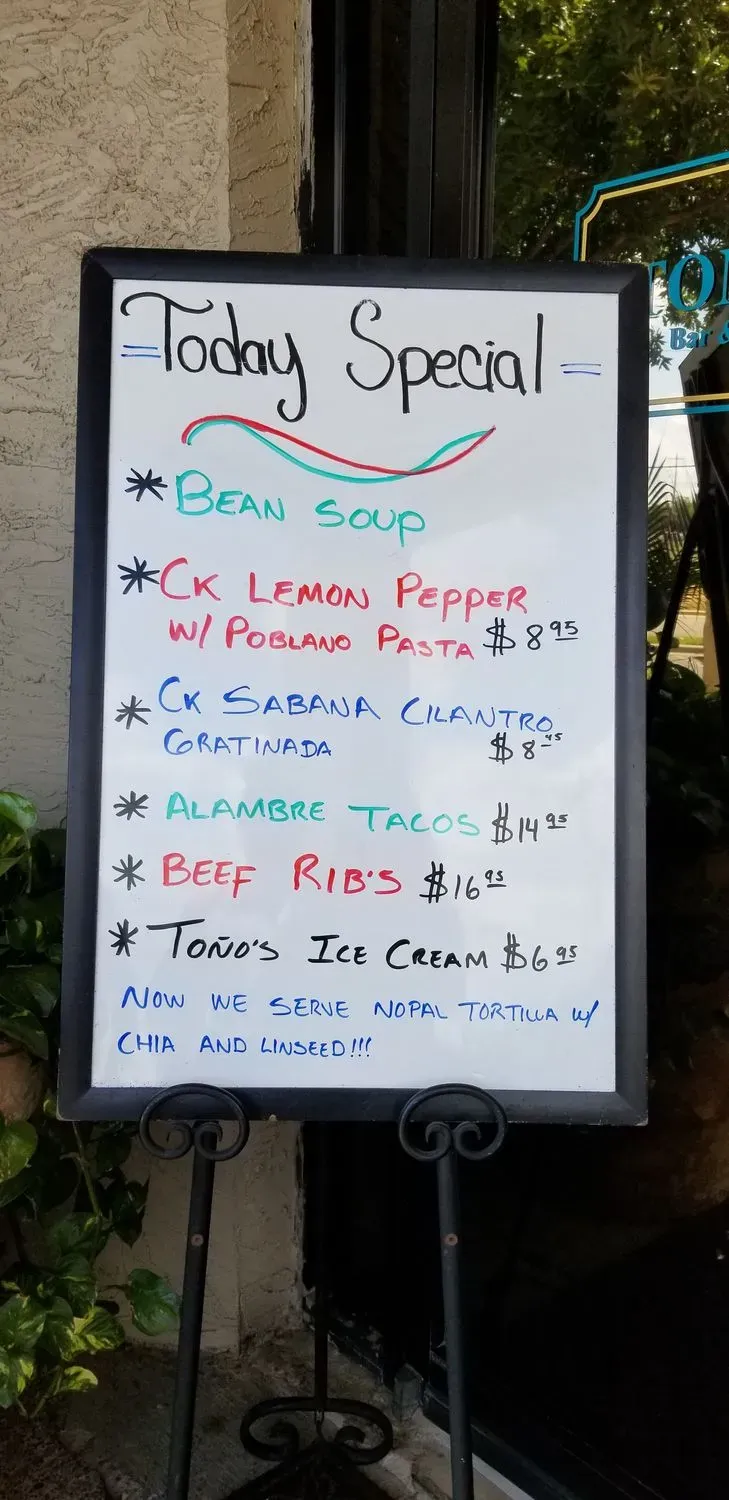 =Today Special=
* BEAN SOUP
* CK LEMON PEPPER
W/ POBLANO PASTA $8.95
* CK SABANA CILANTRO
GRATINADA $8.95
* ALAMBRE TACOS $14.95
* BEEF RIB'S $16.95
* TOÑO'S ICE CREAM $6.95
NOW WE SERVE NOPAL TORTILLA W/
CHIA AND LINSEED!!!
Bar &